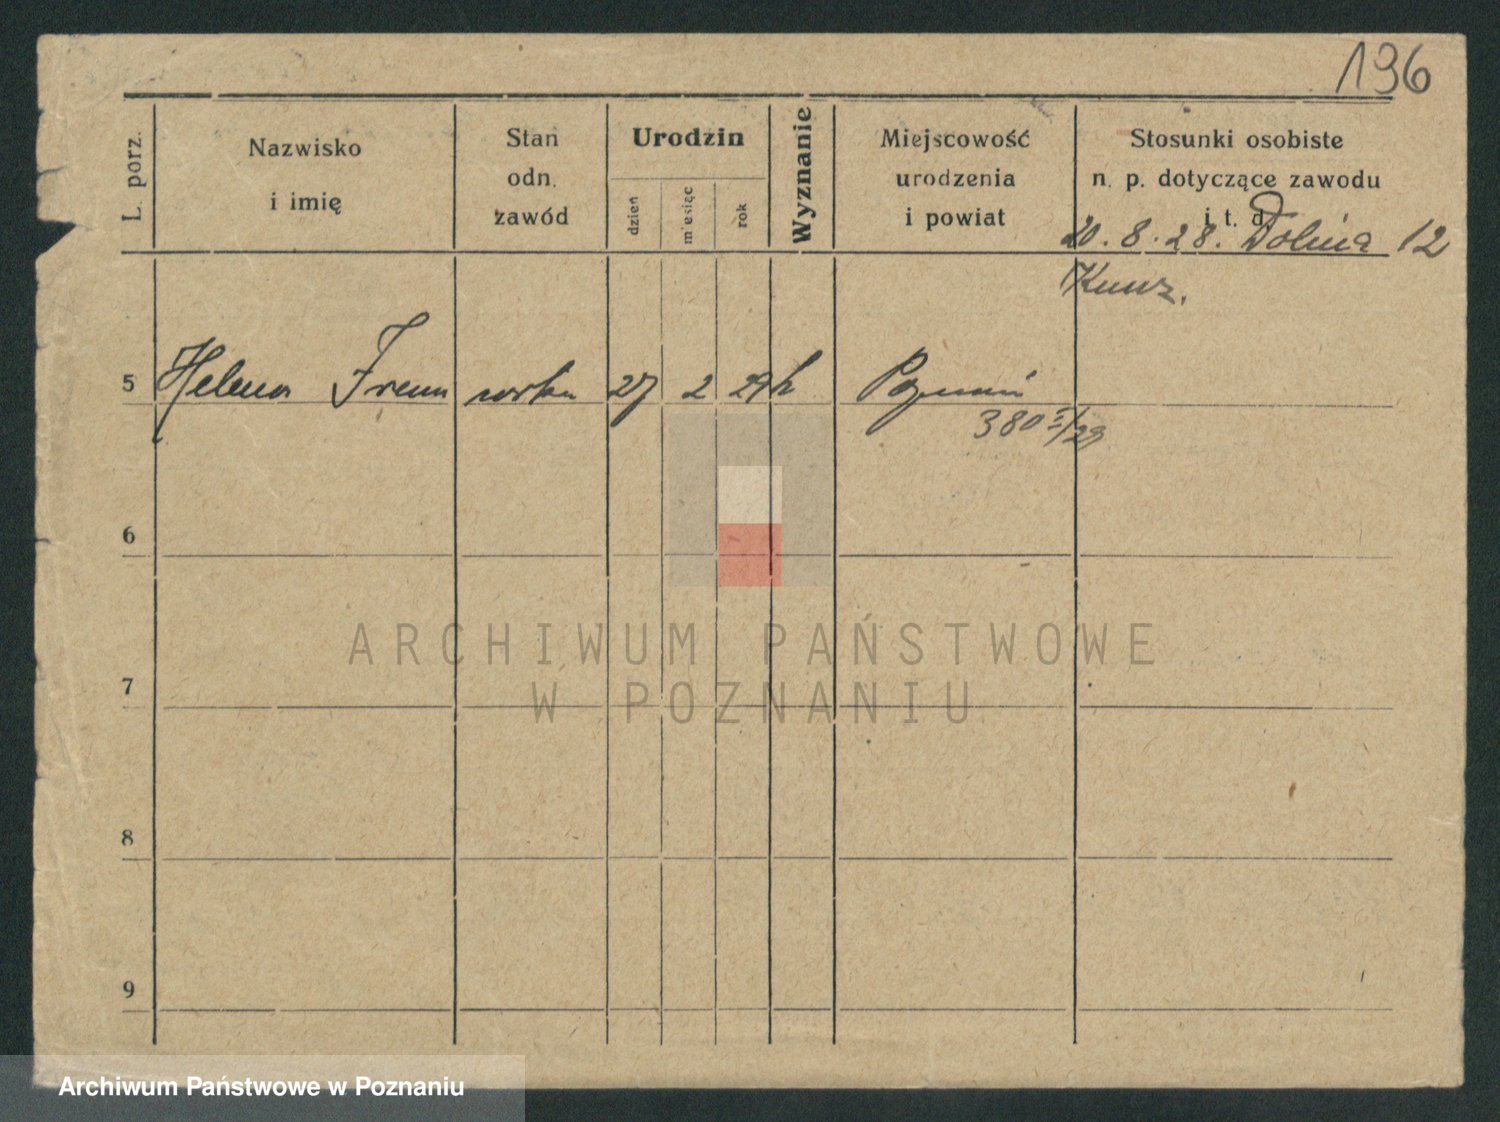 196
L. porz.
Nazwisko
i imię
Stan
odn.
zawód
Urodzin
dzień
miesiąc
rok
Wyznanie
Miejscowość
urodzenia
i powiat
Stosunki osobiste
n. p. dotyczące zawodu
i t. d.
20. 8. 28. Dolina 12
5 Helena córka 27 2 29 k Poznań
380 I/29
6
7
8
9
ARCHIWUM PAŃSTWOWE
W POZNANIU
Archiwum Państwowe w Poznaniu